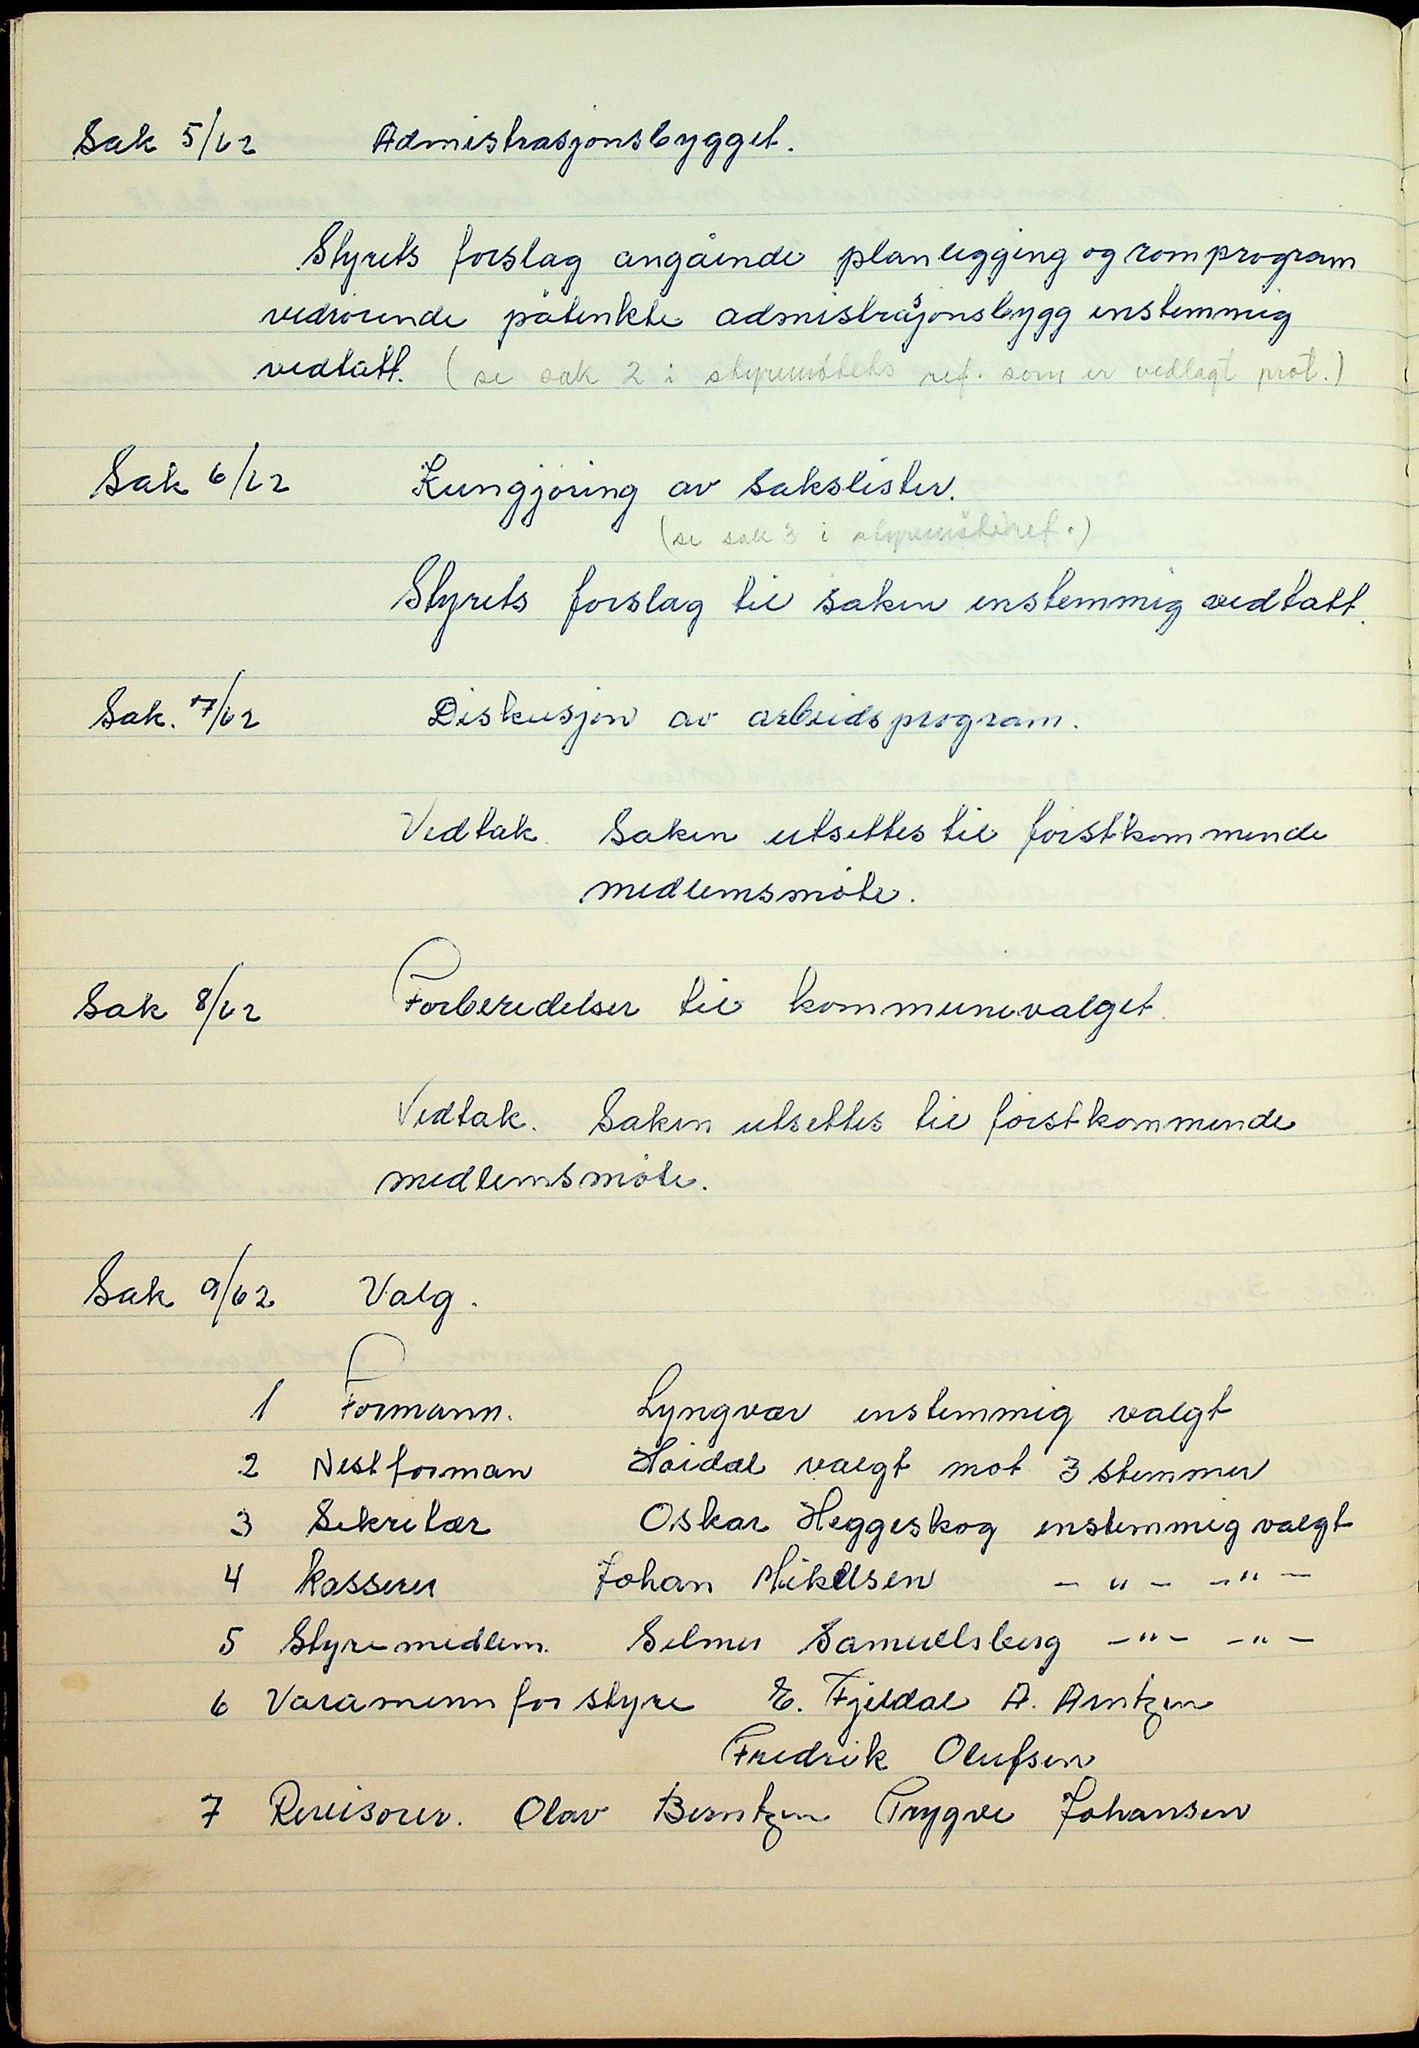 Sak 5/62 Admistrasjonsbygget.
Styrets forslag angående planlegging og romprogram
vedrörende påtenkte admistrasjonsbygg enstemmig
vedtatt. (se sak 2 i styremötets ref. som er vedlagt prot.)
Sak 6/62 Kungjöring av sakslister.
(se sak 3 i styremöteref.)
Styrets forslag til saken enstemmig vedtatt.
Sak. 7/62 Diskusjon av arbeidsprogram.
Vedtak. Saken utsettes til förstkommende
medlemsmöte.
Sak 8/62 Forberedelser til kommunevalget.
Vedtak. Saken utsettes til förstkommende
medlemsmöte.
Sak 9/62 Valg.
1 Formann. Lyngvær enstemmig valgt
2 Nestforman Höidal valgt mot 3 stemmer
3 Sekretær Oskar Heggeskog enstemmig valgt
4 Kasserer Johan Mikelsen - " - - " -
5 Styremedlem. Selmer Samuelsberg - " - - " -
6 Varamenn for styre E. Fjeldal A. Arntzen
Fredrik Olufsen
7 Revisorer. Olav Berntzen Trygve Johansen